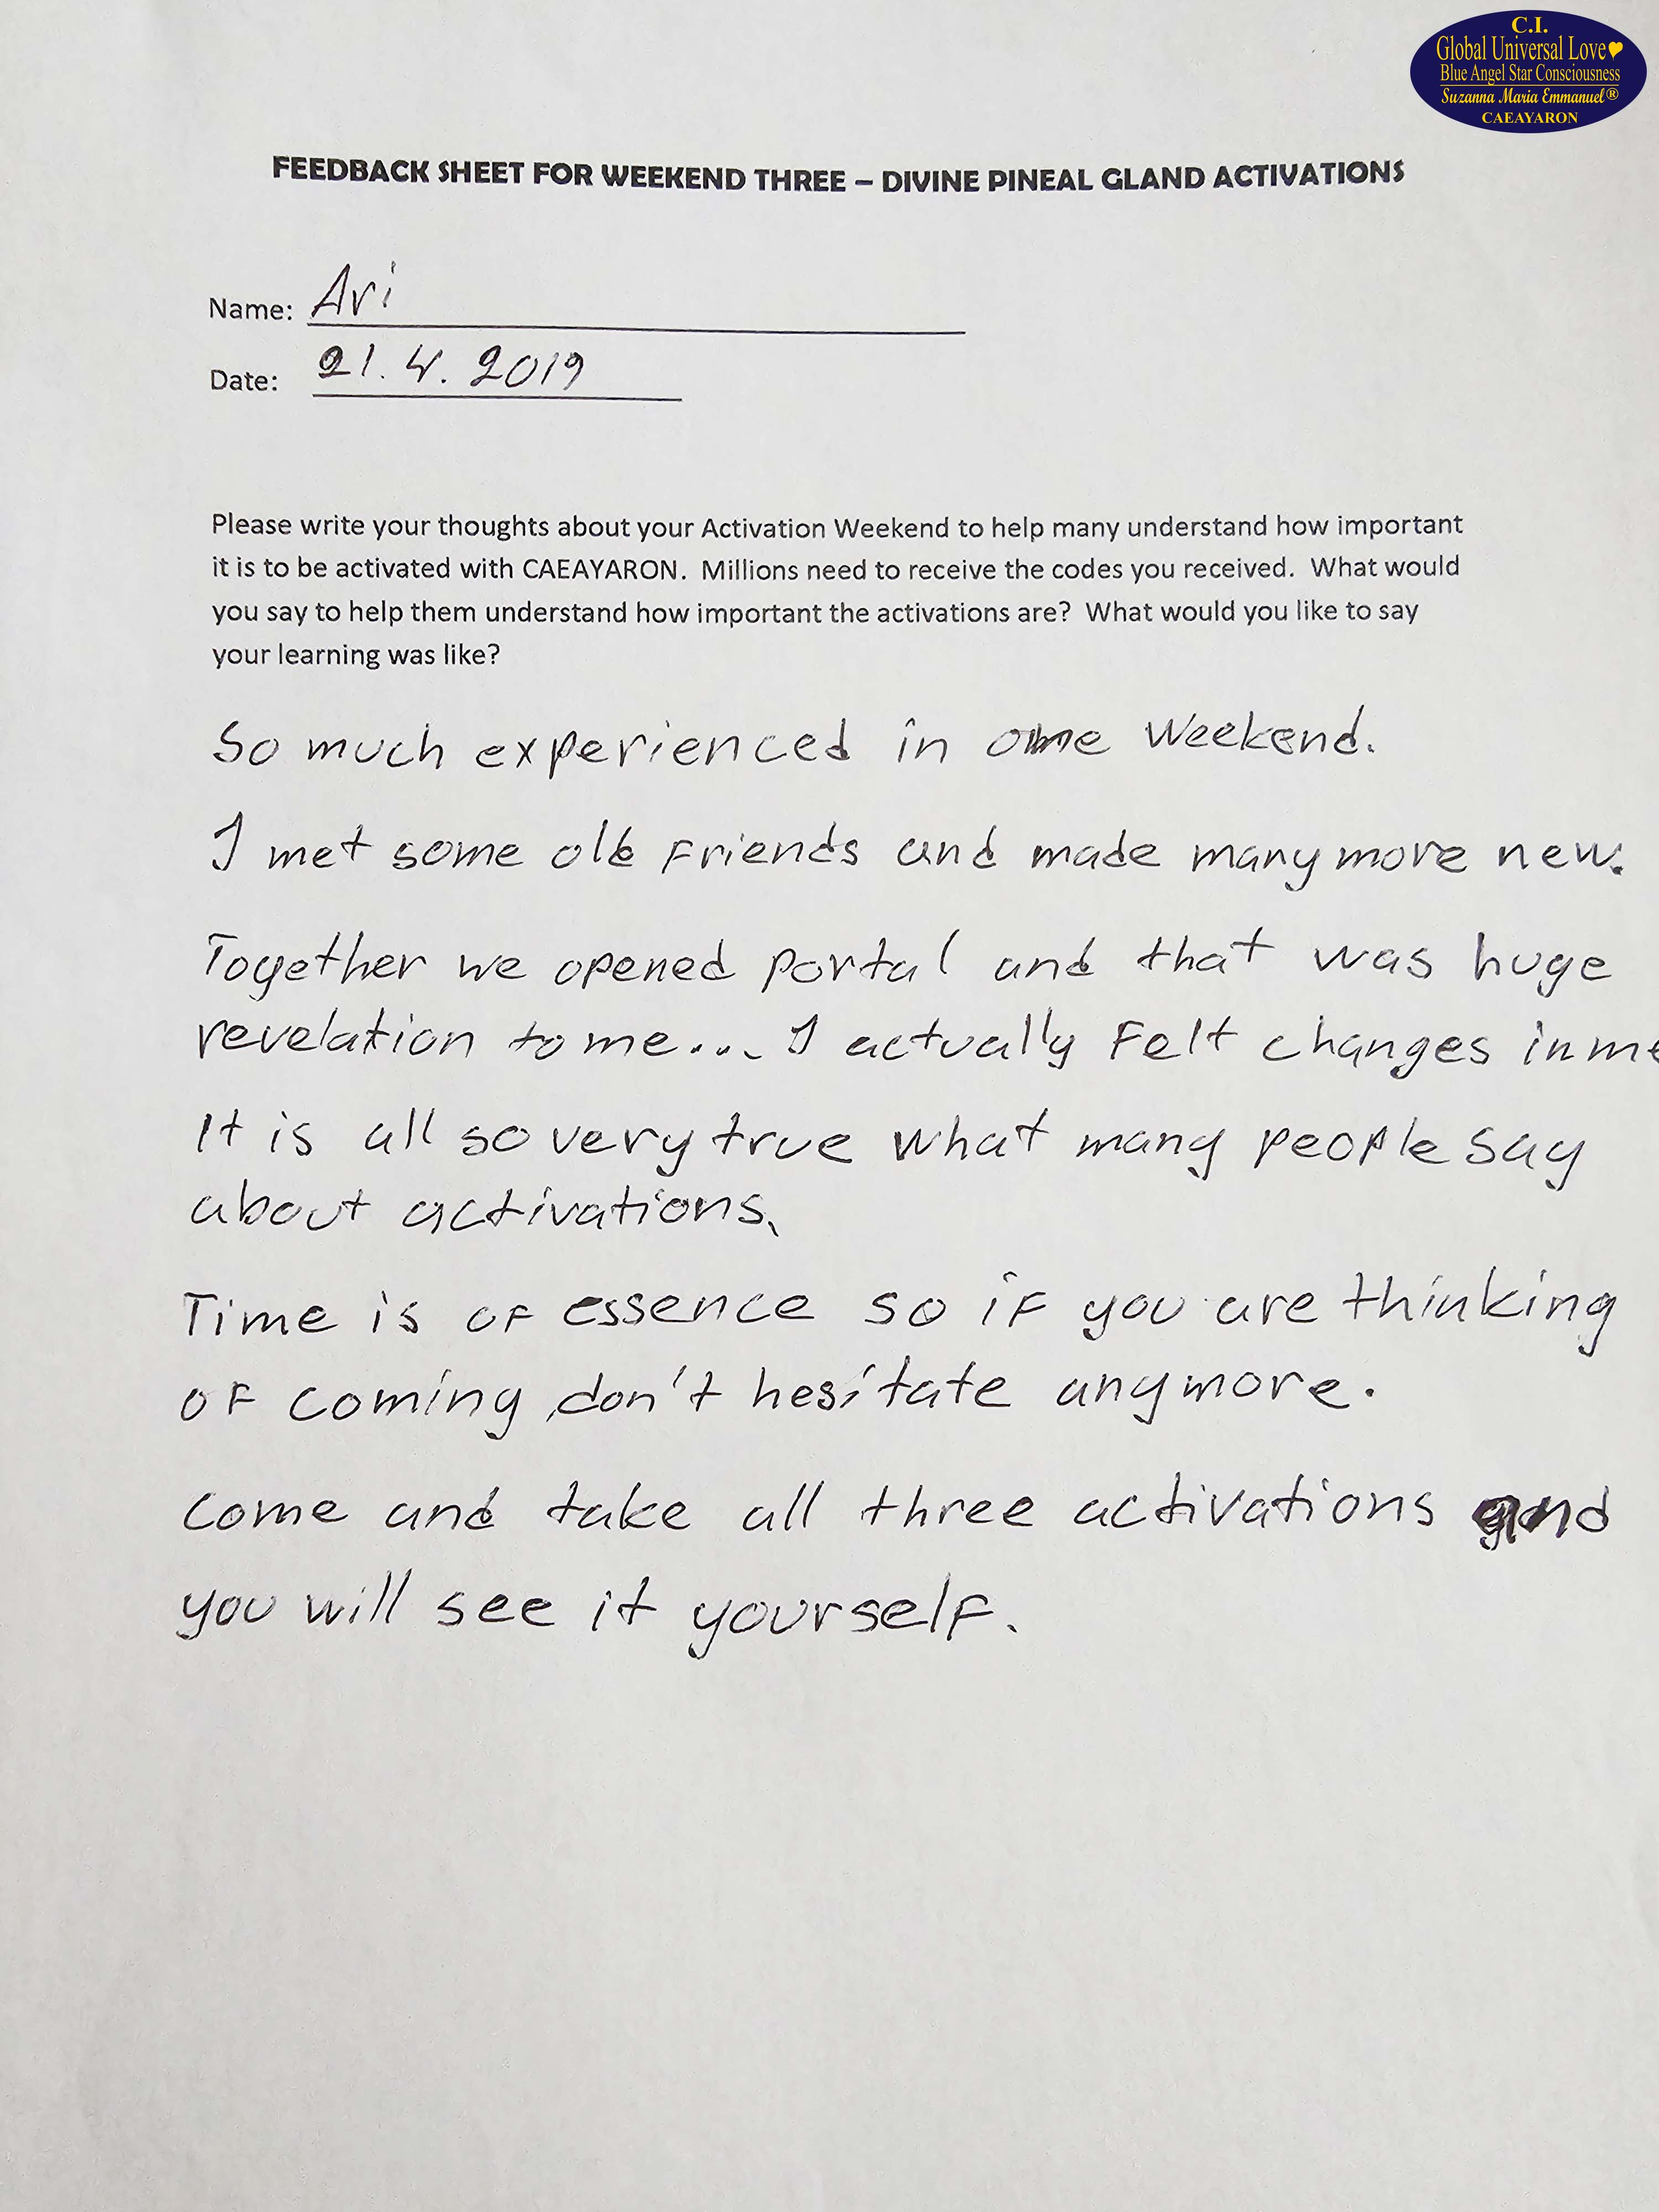 C.I.
Global Universal Love
Blue Angel Star Consciousness
Suzanna Maria Emmanuel®
CAEAYARON
FEEDBACK SHEET FOR WEEKEND THREE – DIVINE PINEAL GLAND ACTIVATIONS
Name: Ari
Date: 21.4.2019
Please write your thoughts about your Activation Weekend to help many understand how important
it is to be activated with CAEAYARON. Millions need to receive the codes you received. What would
you say to help them understand how important the activations are? What would you like to say
your learning was like?
So much experienced in one weekend.
I met some old friends and made many more new.
Together we opened portal and that was huge
revelation to me... I actually felt changes in me
It is all so very true what many people say
about activations.
Time is of essence so if you are thinking
of coming, don't hesitate anymore.
Come and take all three activations and
you will see it yourself.